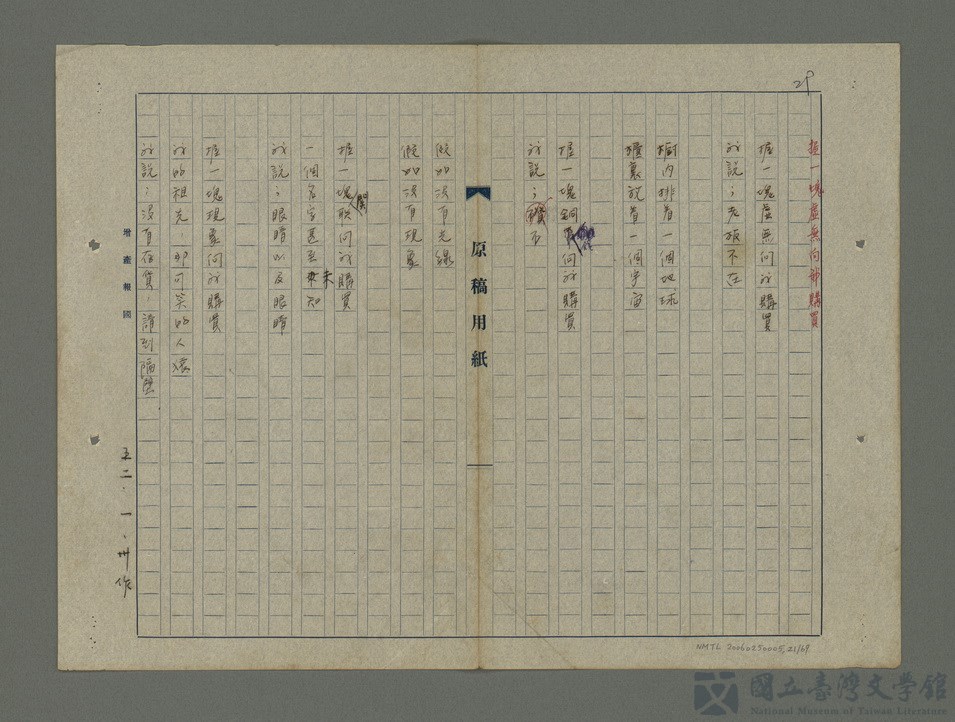 29
握一塊虛無向我購買
握一塊虛無向我購買
我說：老板不在
櫥內排着一個地球
櫃裏放着一個宇宙
握一塊銅
向我購買
我說：
不
原稿用紙
假如没有光線
假如没有現象
握一塊
關
向我購買
一個名字甚至未知
我說：眼睛以及眼睛
握一塊現象向我購買
我的祖先——那可笑的人猿
我說：没有存貨，請到隔壁
增產報國
五二·一·卅作
NMTL 20060250005,21/69
國立臺灣文學館
National Museum of Taiwan Literature